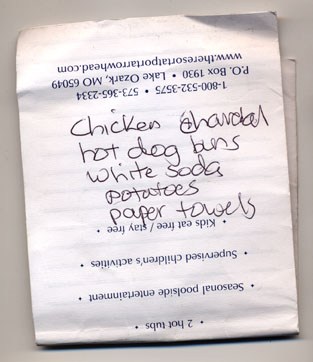 chicken charcoal
hot dog buns
white soda
potatoes
paper towels
• 2 hot tubs •
• Seasonal poolside entertainment •
• Supervised children's activities •
• Kids eat free / stay free •
1-800-532-3575 • 573-365-2334
P.O. Box 1930 • Lake Ozark, MO 65049
www.theresortatportarrowhead.com